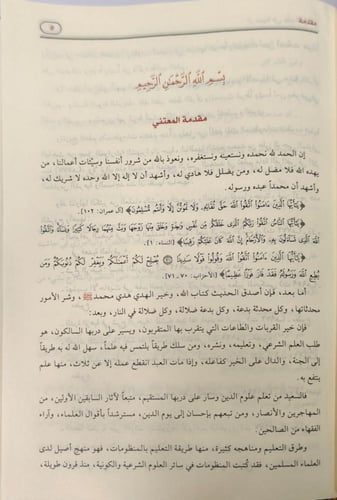 مقدمة
٥
بِسْمِ اللَّهِ الرَّحْمَنِ الرَّحِيمِ
مقدمة المعتني
إن الحمد لله نحمده ونستعينه ونستغفره، ونعوذ بالله من شرور أنفسنا وسيّئات أعمالنا، من
يهده الله فلا مضل له، ومن يضلل فلا هادي له، وأشهد أن لا إله إلا الله وحده لا شريك له،
وأشهد أن محمداً عبده ورسوله.
﴿يَا أَيُّهَا الَّذِينَ آمَنُوا اتَّقُوا اللَّهَ حَقَّ تُقَاتِهِ وَلَا تَمُوتُنَّ إِلَّا وَأَنْتُمْ مُسْلِمُونَ﴾ [آل عمران: ١٠٢].
﴿يَا أَيُّهَا النَّاسُ اتَّقُوا رَبَّكُمُ الَّذِي خَلَقَكُمْ مِنْ نَفْسٍ وَاحِدَةٍ وَخَلَقَ مِنْهَا زَوْجَهَا وَبَثَّ مِنْهُمَا رِجَالًا كَثِيرًا وَنِسَاءً وَاتَّقُوا
اللَّهَ الَّذِي تَسَاءَلُونَ بِهِ وَالْأَرْحَامَ إِنَّ اللَّهَ كَانَ عَلَيْكُمْ رَقِيبًا﴾ [النساء: ١].
﴿يَا أَيُّهَا الَّذِينَ آمَنُوا اتَّقُوا اللَّهَ وَقُولُوا قَوْلًا سَدِيدًا ۝ يُصْلِحْ لَكُمْ أَعْمَالَكُمْ وَيَغْفِرْ لَكُمْ ذُنُوبَكُمْ وَمَنْ
يُطِعِ اللَّهَ وَرَسُولَهُ فَقَدْ فَازَ فَوْزًا عَظِيمًا﴾ [الأحزاب: ٧٠-٧١].
أما بعد، فإن أصدق الحديث كتاب الله، وخير الهدي هدي محمد ﷺ، وشر الأمور
محدثاتها، وكل محدثة بدعة، وكل بدعة ضلالة، وكل ضلالة في النار، وبعد:
فإن خير القربات والطاعات التي يتقرب بها المتقربون، ويسير على دربها السالكون، هو
طلب العلم الشرعي، وتعليمه، ونشره، ومن سلك طريقاً يلتمس فيه علماً، سهل الله له به طريقاً
إلى الجنة، والدال على الخير كفاعله، وإذا مات العبد انقطع عمله إلا عن ثلاث، منها علم
ينتفع به.
فالسعيد من تعلم علوم الدين وسار على دربها المستقيم، متبعاً لآثار السابقين الأولين، من
المهاجرين والأنصار، ومن تبعهم بإحسان إلى يوم الدين، مسترشداً بأقوال العلماء، وآراء
الفقهاء من الصالحين.
وطرق التعليم ومناهجه كثيرة، منها طريقة التعليم بالمنظومات، فهو منهج أصيل لدى
العلماء المسلمين، فقد كُتبت المنظومات في سائر العلوم الشرعية والكونية، منذ قرون طويلة،